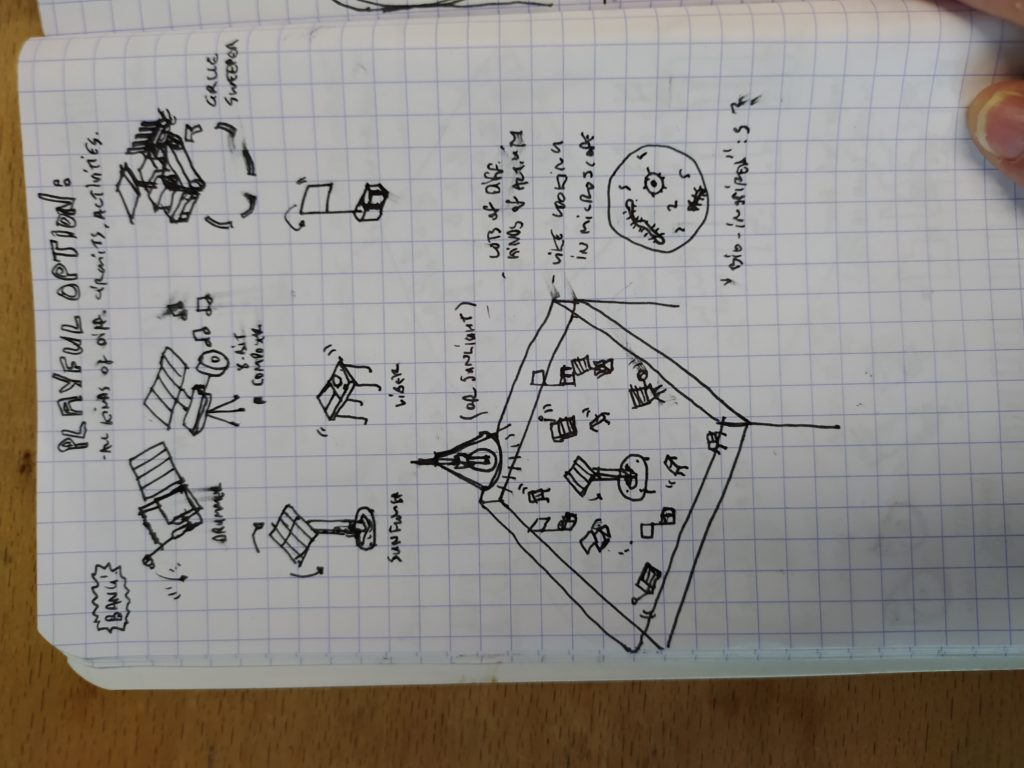 PLAYFUL OPTION:
- ALL KINDS OF DIFF. CIRCUITS, ACTIVITIES.
BANG!
DRUMMER
8-BIT
COMPOSER
CIRCLE
SWEEPER
SUNFLOWER
VIBER
(OR SUNLIGHT)
- LOTS OF DIFF.
KINDS OF ACTIVITY
- LIKE LOOKING
IN MICROSCOPE
"BIO-INSPIRED"